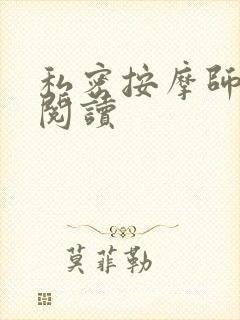 私密按摩師
閱讀
莫菲勒